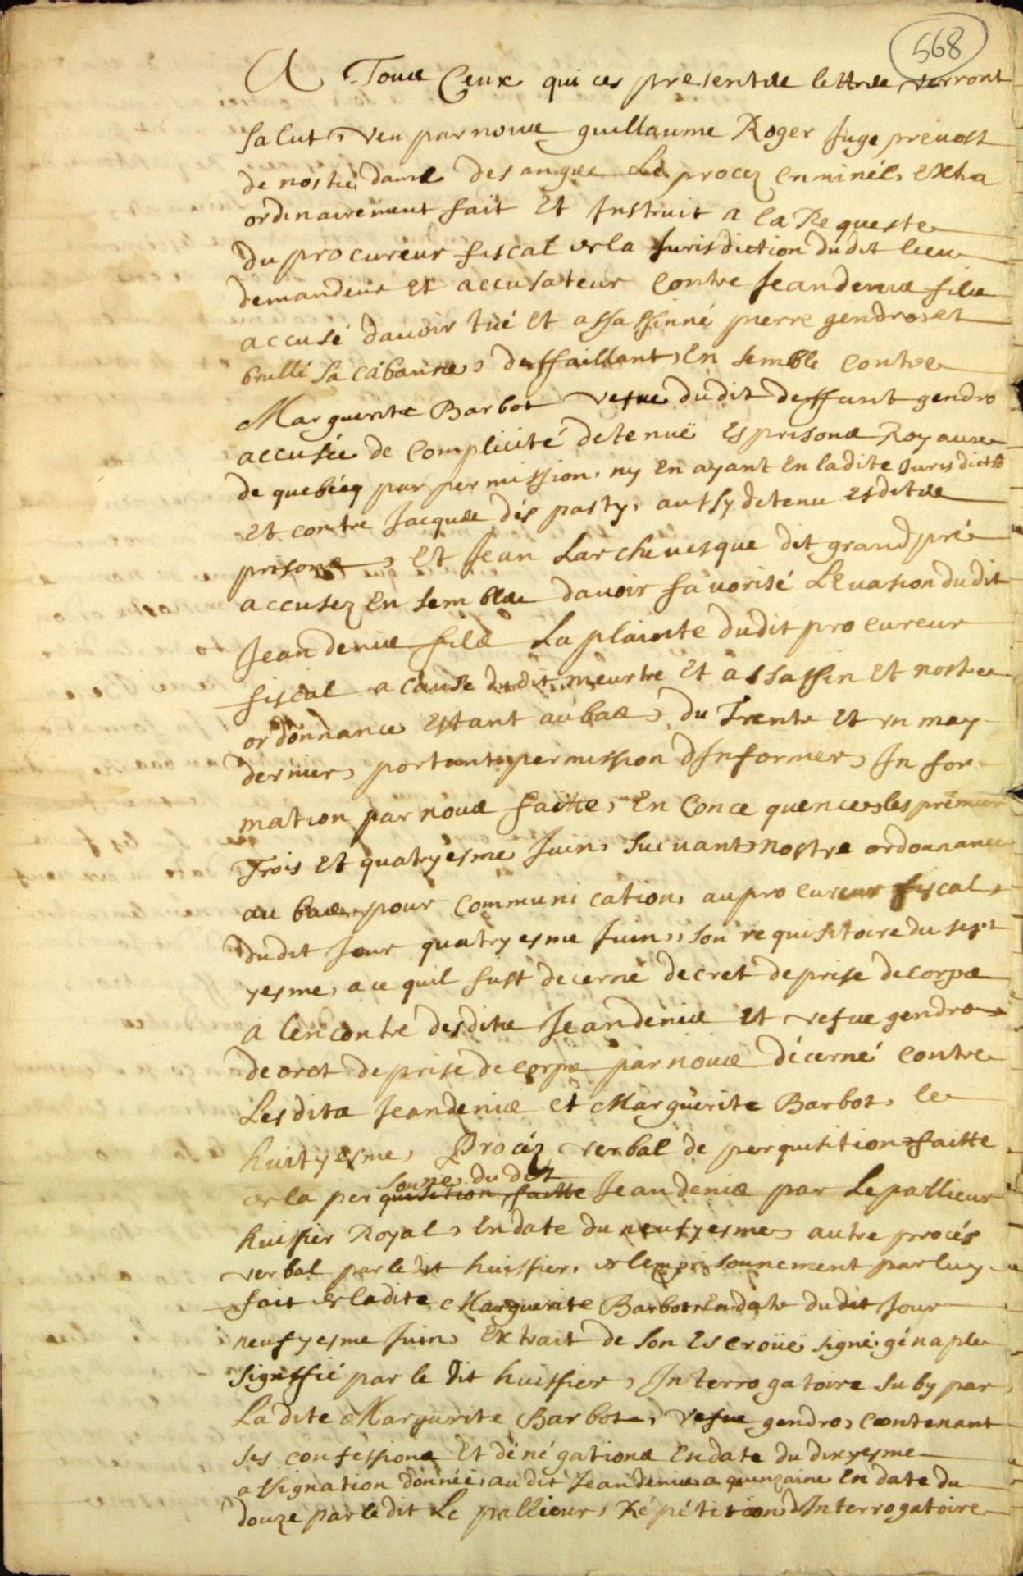 568
A Tous Ceux qui ces presentes lettres verront
salut, veu par nous guillaume Roger Juge prevost
de nostre dame des anges Le procez criminel, extra
ordinairement fait Et Instruit a la Requeste
Du procureur fiscal de la Jurisdiction dudit lieu
demandeur et accusateur Contre Jean denis fils
accusé davoir tué Et assassiné pierre gendro et
brullé sa cabanne, deffaillant, Ensemble contre
Marguerite Barbot vefve dudit deffunt gendro
accusée de Complicité detenuë es prisons Royaux
de quebecq par permission, ny En ayant En ladite Jurisdicton
Et contre Jacques des pasty, aussy detenu esdites
prisons, Et Jean Larchevesque dit grandpré
accusez Ensembles davoir favorisé L'Evasion dudit
Jean denis fils La plainte dudit procureur
fiscal a cause dudit meurtre Et assassin Et nostre
ordonnance Estant au bas, du Trente Et un may
dernier, portant permission d'Informer, Infor
mation par nous faitte, En Consequence, les premier
Trois Et quatryesme Juin, suivant nostre ordonnance
au bas, pour communication, au procureur fiscal,
dudit Jour quatryesme Juin, son requisitoire du sept
yesme, a ce quil fust decerné decret de prise de corps
a lencontre desdits Jean denis Et vefve gendro
decret de prise de corps par nous décerné contre
Lesdits Jean denis et Marguerite Barbot, le
huityesme, Procéz verbal de perquisition faitte
sonne du dit
de la per quisition faitte Jean denis par Lepallieur
huissier Royal, En date du neufyesme, autre procés
verbal par ledit huissier, de lemprisonnement par luy
fait de ladite Marguerite Barbot En date dudit Jour
neufyesme Juin, Extrait de son Escroüe signé génaple
Signiffié par le dit huissier, Interrogatoire suby par
Ladite Marguerite Barbot, vefve gendro, contenant
ses confessions Et dénégations En date du dixyesme
assignation donnée, audit Jean denis a quinzaine En date du
douze par ledit Le pallieur, Répétition d'Interrogatoire